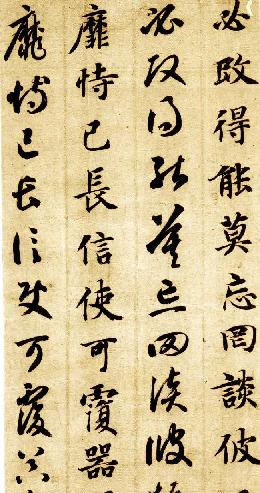 必改得能莫忘罔談彼
必改得能莫忘罔談彼
靡恃己長信使可覆器
靡恃己長信使可覆器